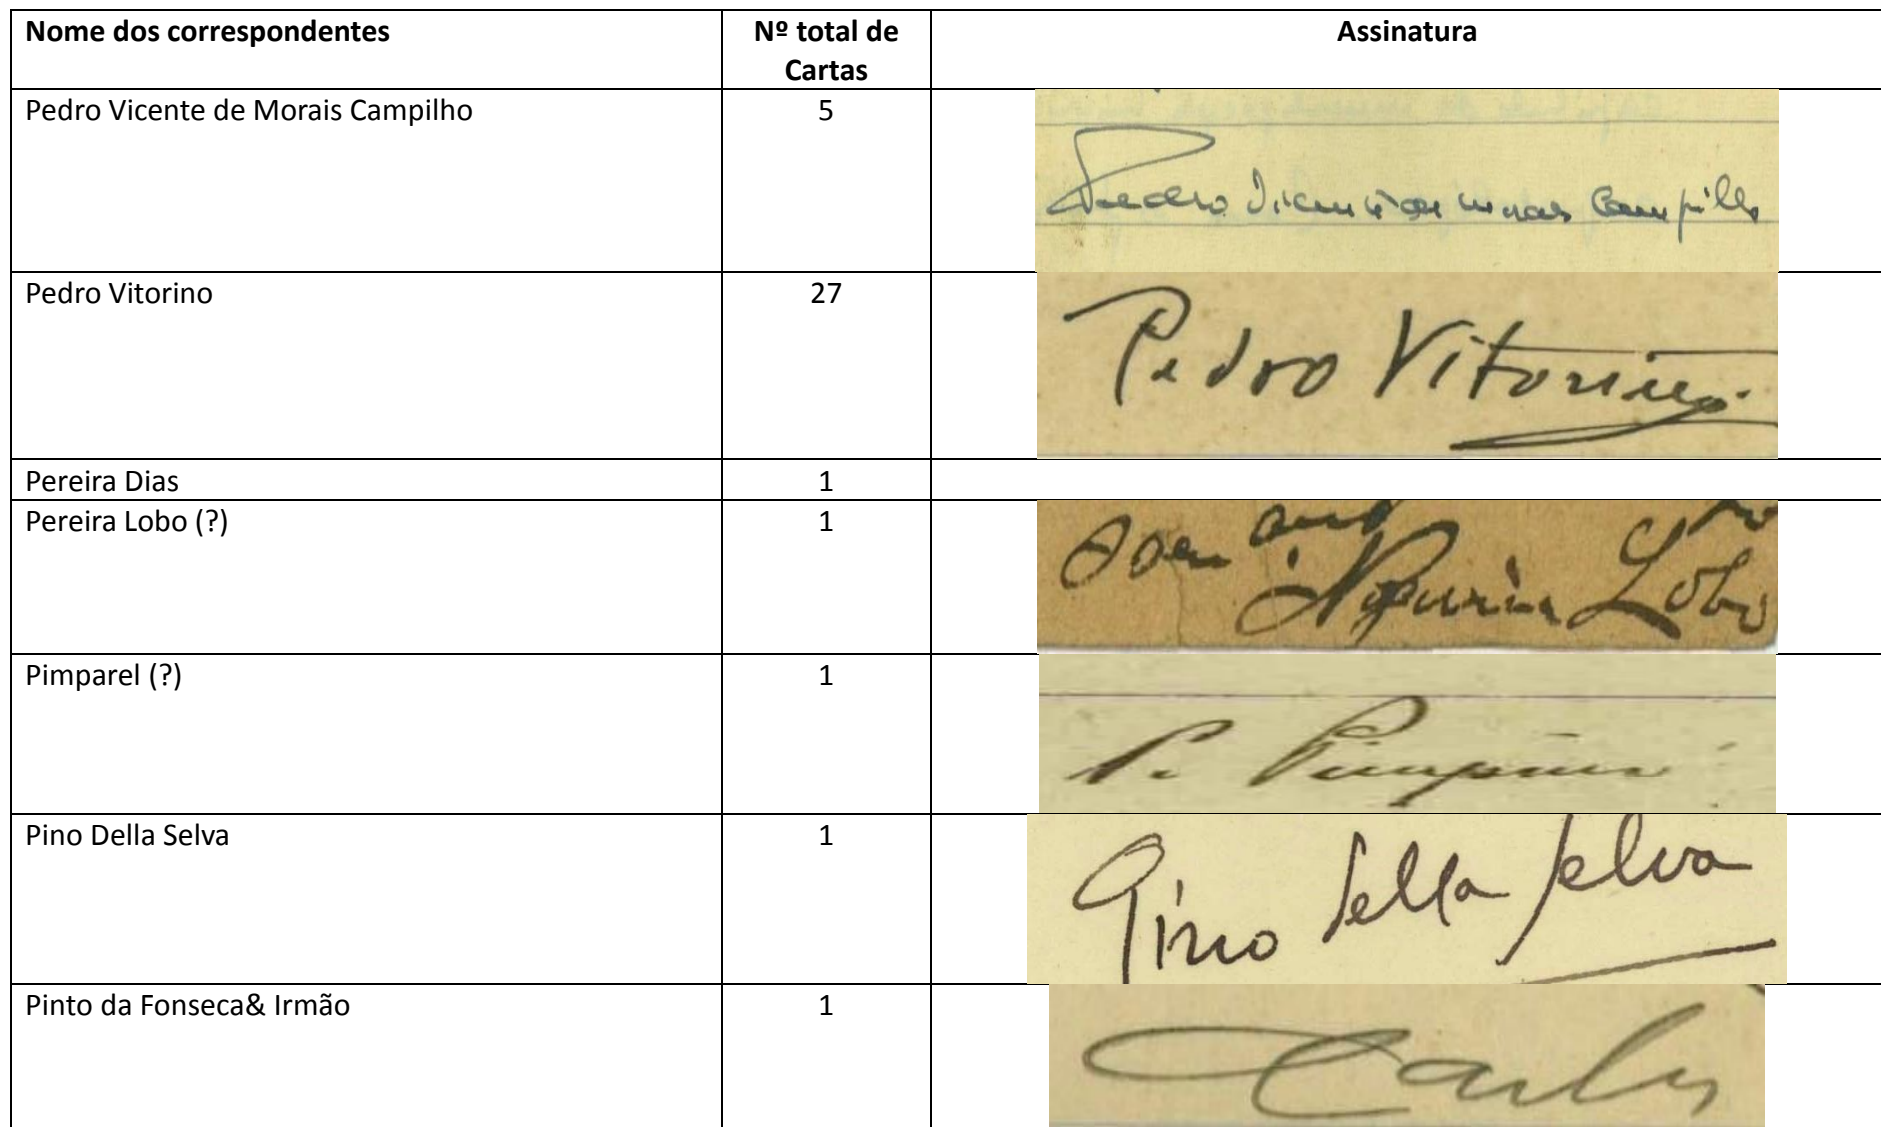 Nome dos correspondentes
Nº total de
Cartas
Assinatura
Pedro Vicente de Morais Campilho
5
Pedro Vicente de Morais Campilho
Pedro Vitorino
27
Pedro Vitorino
Pereira Dias
1
Pereira Lobo (?)
1
Lobo
Pimparel (?)
1
P.
Pino Della Selva
1
Pino Della Selva
Pinto da Fonseca& Irmão
1